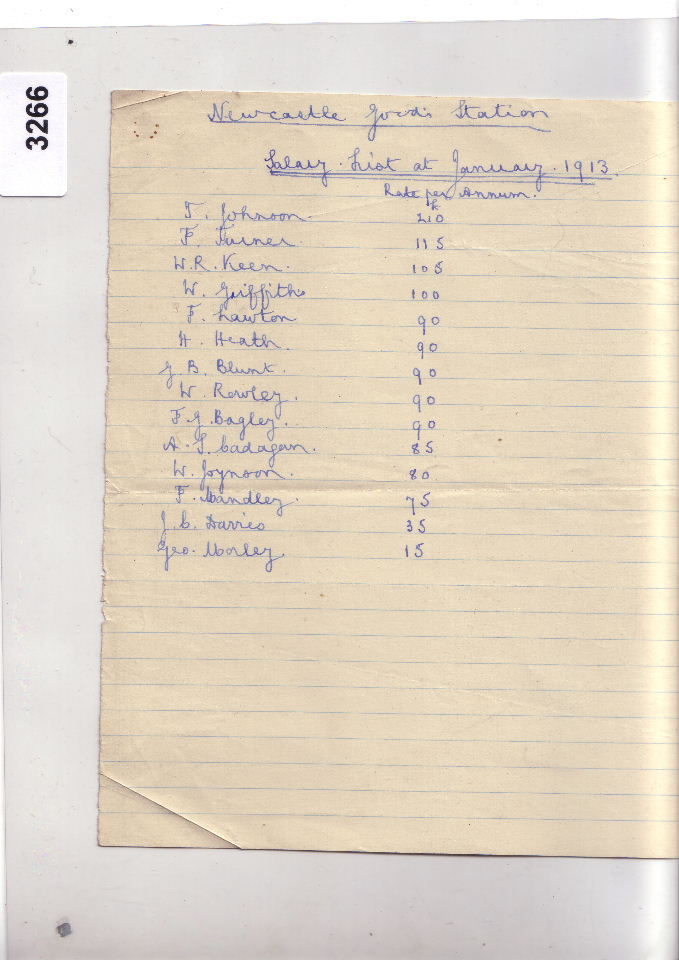 3266
Newcastle Goods Station
Salary List at January 1913.
Rate per Annum.
£
T. Johnson 210
F. Turner 115
W.R. Keen. 105
W. Griffiths 100
F. Lawton 90
H. Heath. 90
J. B. Blunt. 90
W. Rowley. 90
F.J. Bagley. 90
A. S. Cadagan. 85
W. Joynson. 80
F. Mandley. 75
J. C. Davies 35
Geo. Morley. 15